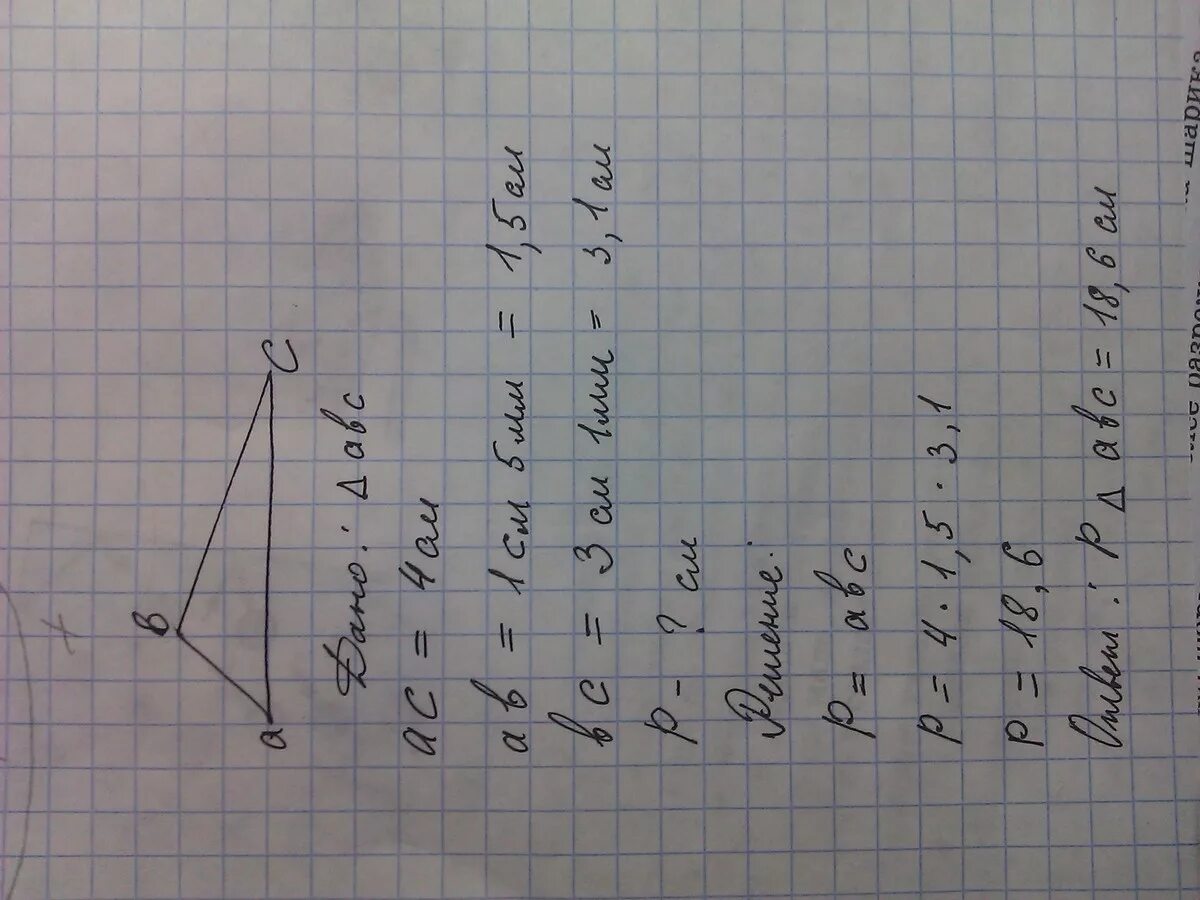 B
a
C
Дано: Δ авс
ас = 4 см
ав = 1 см 5 мм = 1,5 см
вс = 3 см 1 мм = 3,1 см
P - ? см
Решение:
P = авс
P = 4 · 1,5 · 3,1
P = 18,6
Ответ: P Δ авс = 18,6 см
шарика